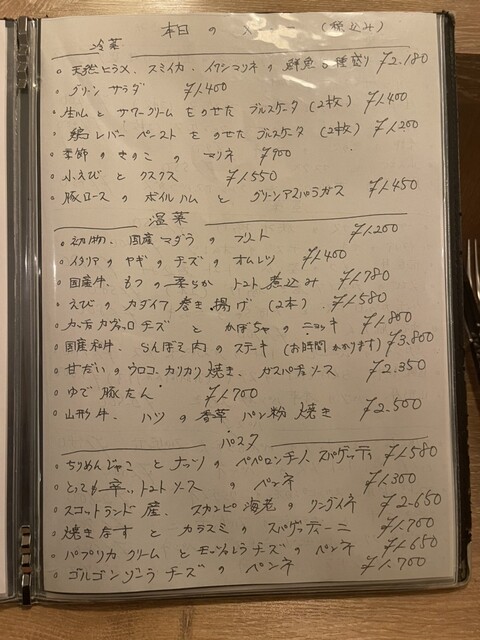 本日の メ (税込み)
冷菜
○ 天然ヒラメ、スミイカ、イワシマリネの 鮮魚 種盛り ¥2.180
○ グリーン サラダ ¥1.400
○ 生ハムと サワークリームをのせた ブルスケッタ (2枚) ¥1.400
○ 鶏レバー ペーストを のせた ブルスケッタ (2枚) ¥1.200
○ 季節の きのこの マリネ ¥900
○ 小えびと クスクス ¥1.550
○ 豚ロースの ボイルハムと グリーンアスパラガス ¥1.450
温菜
○ 初物、国産 マダラの フリット ¥1.200
○ イタリアの ヤギの チーズの オムレツ ¥1.400
○ 国産牛、もつの 柔らか トマト 煮込み ¥1.780
○ えびの カダイフ 巻き 揚げ (2本) ¥1.580
○ カッチョカヴァッロ チーズと かぼちゃの ニョッキ ¥1.800
○ 国産和牛、らんぼそ肉の ステーキ (お時間かかります) ¥3.800
○ 甘だいの ウロコ カリカリ焼き、ガスパチョソース ¥2.350
○ ゆで 豚たん ¥1.700
○ 山形牛、ハツの 香草 パン粉 焼き ¥2.500
パスタ
○ ちりめんじゃこと ナッツの ペペロンチーノ スパゲッティ ¥1.580
○ とっても 辛い トマトソースの ペンネ ¥1.300
○ スコットランド産、スカンピ海老の リングイネ ¥2.650
○ 焼きなすと カラスミの スパゲッティーニ ¥1.700
○ パプリカ クリームと モッツァレラチーズの ペンネ ¥1.650
○ ゴルゴンゾーラ チーズの ペンネ ¥1.700